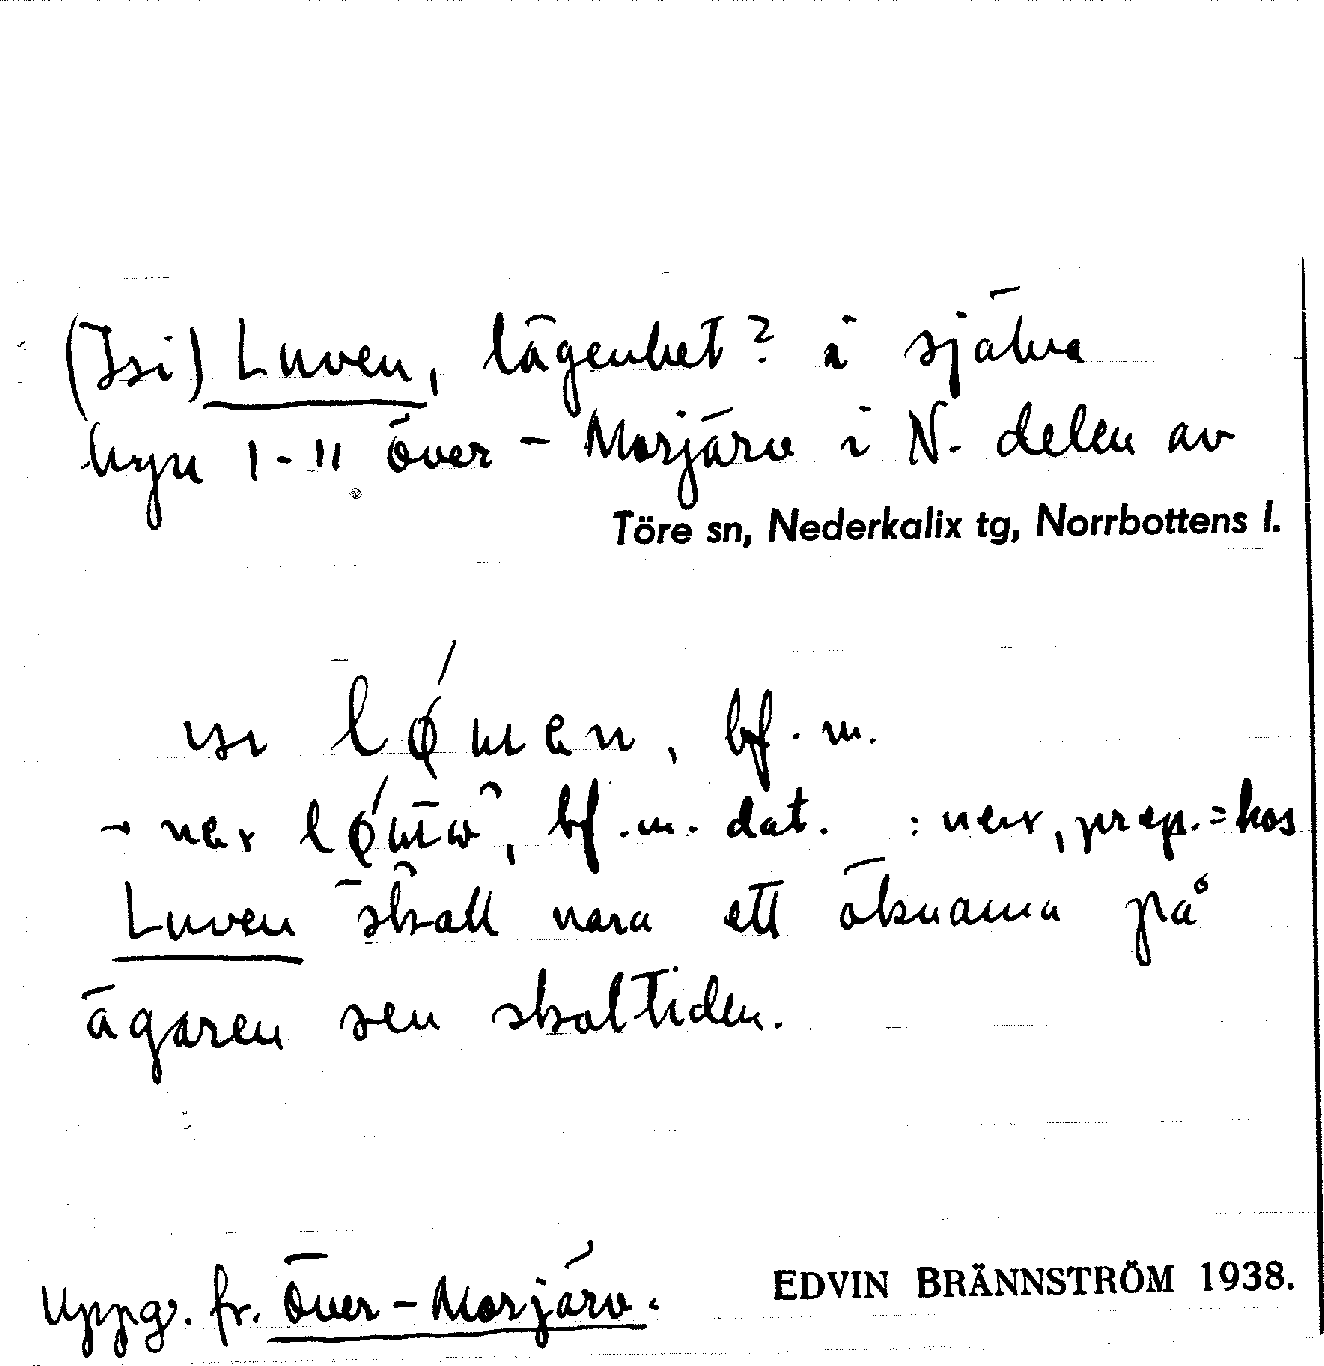 (Isi) Luven, lägenhet? i själva
byn 1-11 Över-Morjärv i N. delen av
Töre sn, Nederkalix tg, Norrbottens l.
bf. m.
bf. m. dat. : ner, prep. = hos
Luven skall vara ett öknamn på
ägaren sen skoltiden.
Uppg. fr. Över-Morjärv.
EDVIN BRÄNNSTRÖM 1938.